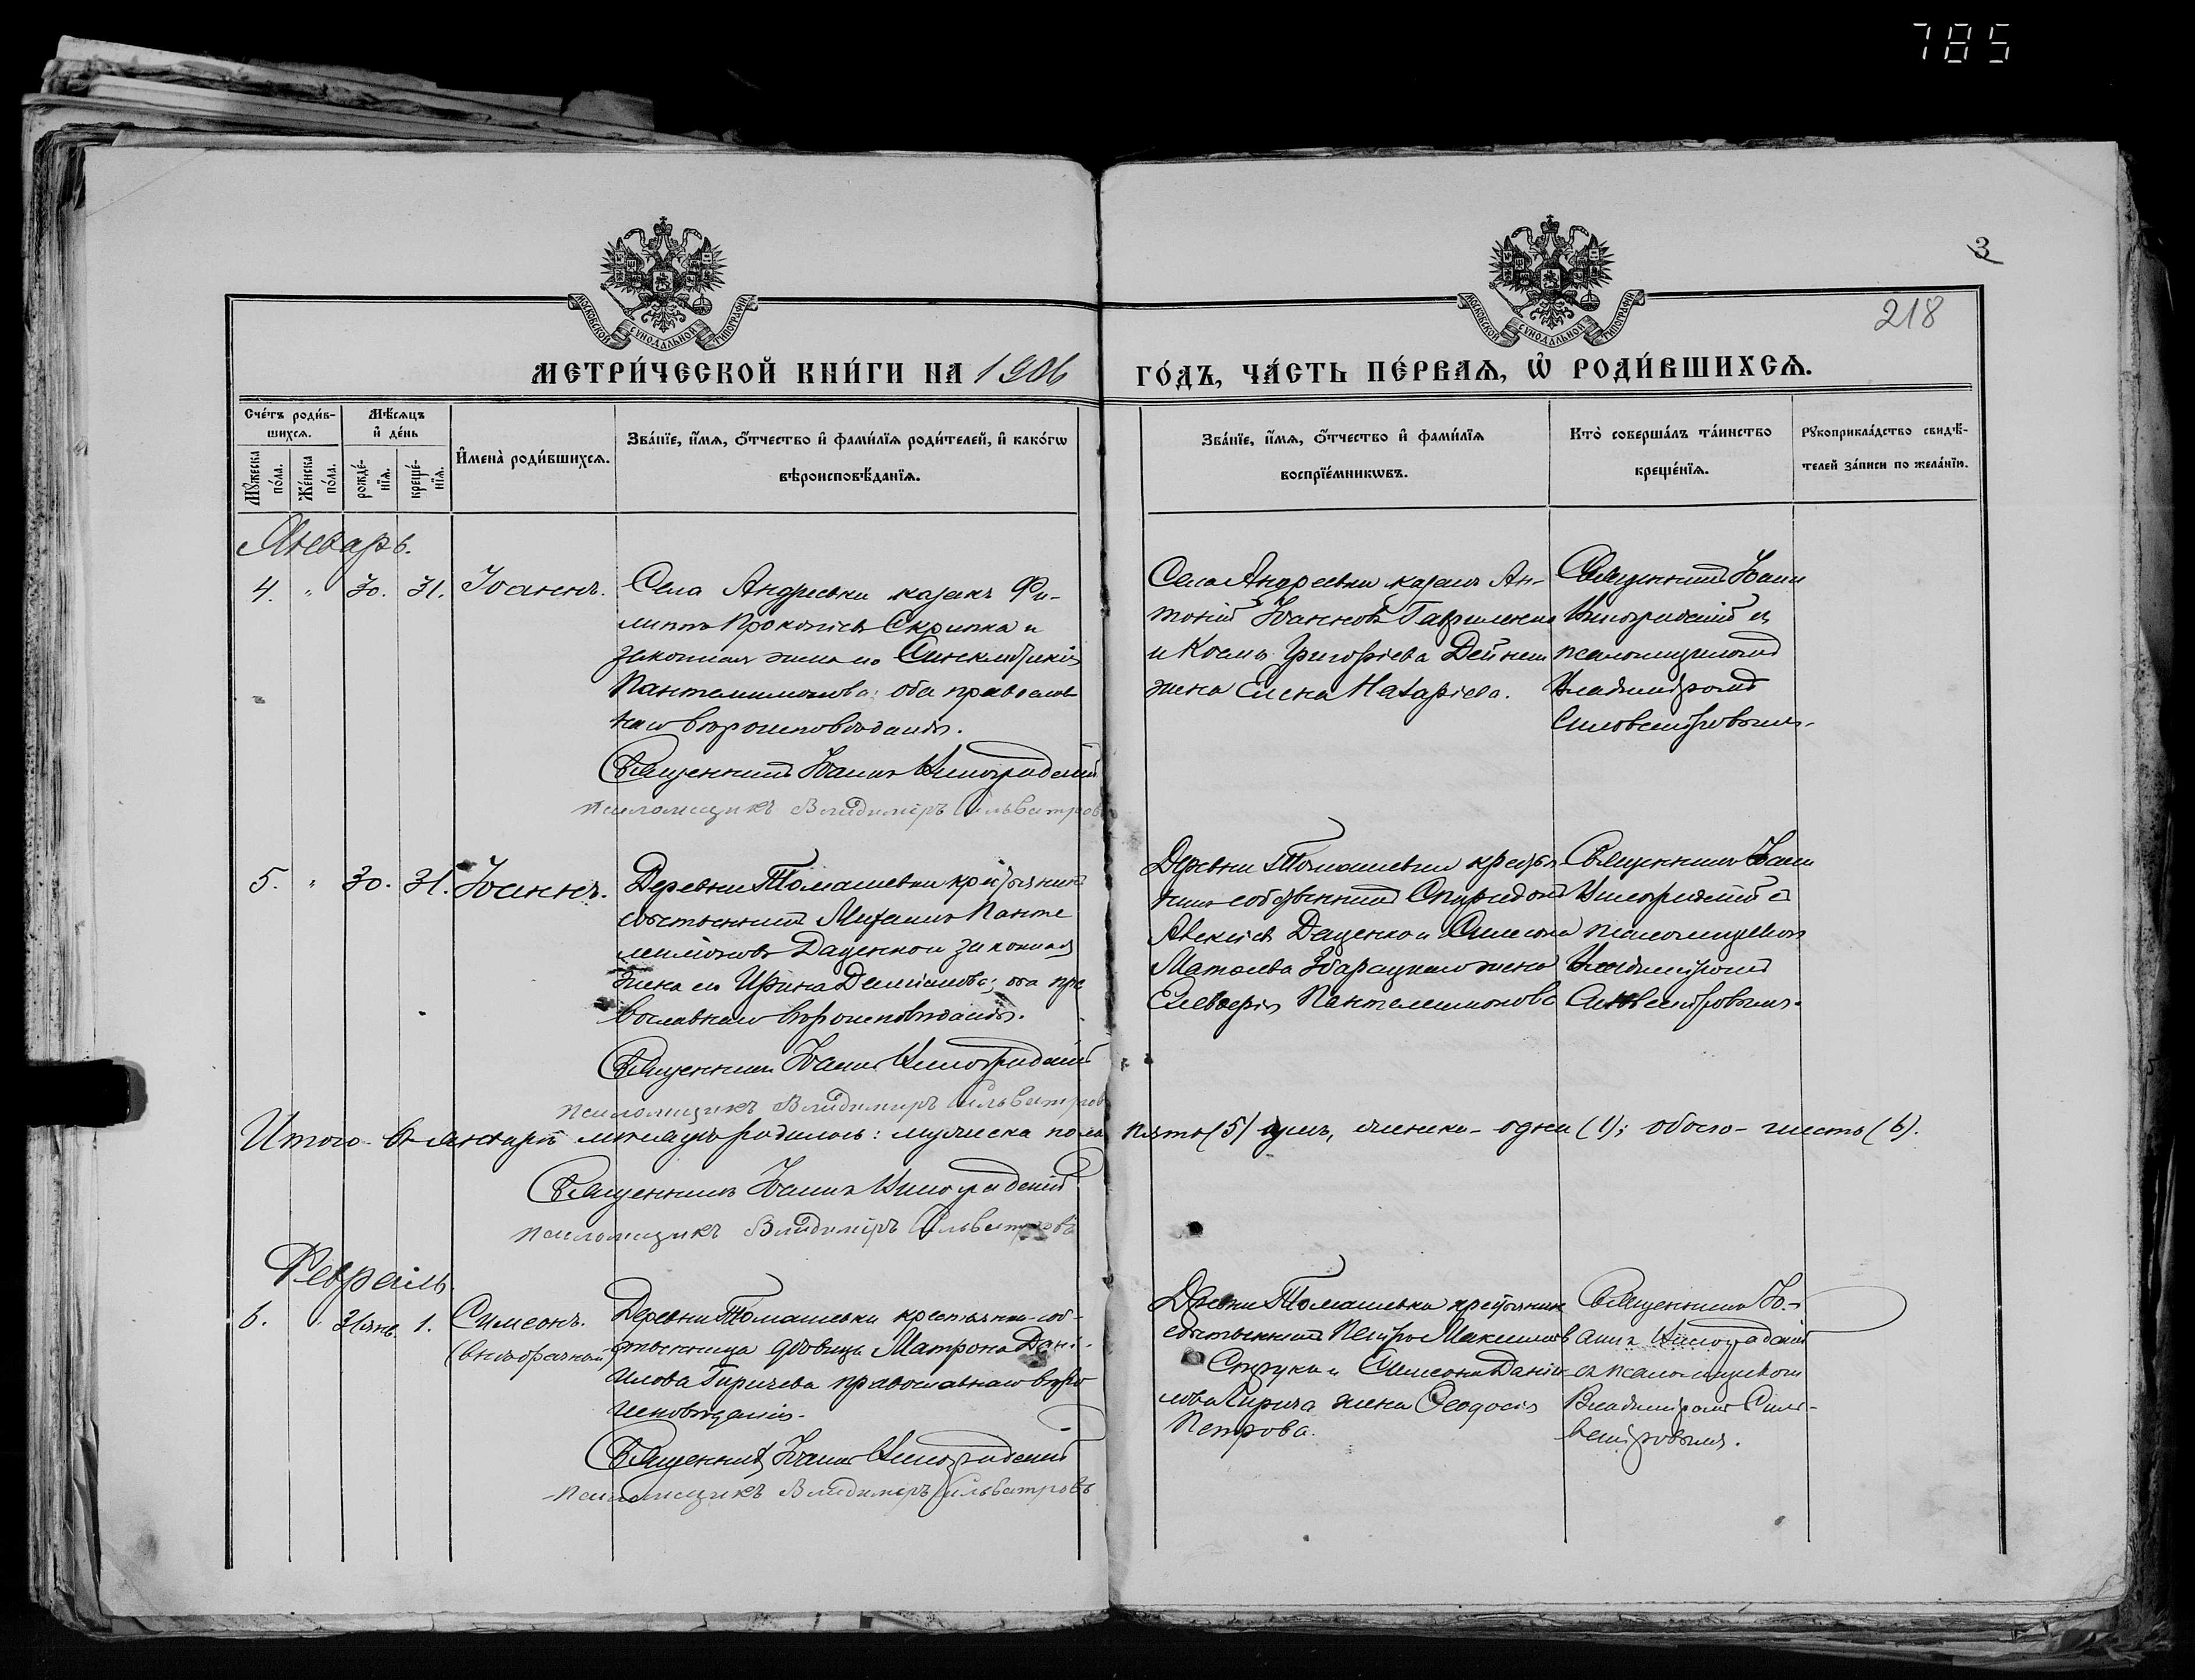 785
3
218
МОСКОВСКОЙ СѴНОДАЛЬНОЙ ТИПОГРАФІИ
МОСКОВСКОЙ СѴНОДАЛЬНОЙ ТИПОГРАФІИ
МЕТРИ́ЧЕСКОЙ КНИ́ГИ НА 1906
ГО́ДЪ, ЧА́СТЬ ПЕ́РВАѦ, Ѽ РОДИ́ВШИХСѦ.
Сче́тъ роди́в-
шихсѧ.
Мꙋ́жеска
по́ла.
Же́нска
по́ла.
Мѣ́сѧцъ
и҆ де́нь
рожде́-
нїѧ.
креще́-
нїѧ.
И҆мена̀ роди́вшихсѧ.
Зва́нїе, и҆́мѧ, ѻ҆́тчество и҆ фами́лїѧ роди́телей, и҆ како́гѡ
вѣроисповѣ́данїѧ.
Зва́нїе, и҆́мѧ, ѻ҆́тчество и҆ фами́лїѧ
воспрїе́мникѡвъ.
Кто̀ соверша́лъ та́инство
креще́нїѧ.
Рꙋкоприкла́дство свидѣ́-
телей за́писи по жела́нїю.
Январь.
4. " 30. 31. Іоаннъ.
Села Андреевки казакъ Фи-
липпъ Прокопіевъ Скрипка и
законная жена его Синклитикія
Пантелимонова; оба православ
наго вѣроисповѣданія.
Священникъ Іоаннъ Виноградскій
псаломщикъ Владиміръ Сильвестровъ
Села Андреевки казакъ Ан-
тоній Іоанновъ Гавриленко
и Космы Григоріева Дейнеки
жена Елена Назаріева.
Священникъ Іоаннъ
Виноградскій съ
псаломщикомъ
Владиміромъ
Сильвестровымъ.
5. " 30. 31. Іоаннъ.
Деревни Томашевки крестьянинъ
собственникъ Михаилъ Панте
леимоновъ Даценко и законная
жена его Ирина Даміанова; оба пра
вославнаго вѣроисповѣданія.
Священникъ Іоаннъ Виноградскій
псаломщикъ Владиміръ Сильвестровъ
Деревни Томашевки крестья
нинъ собственникъ Спиридонъ
Алексіевъ Даценко и Симеона
Матѳеева Збарацкаго жена
Елевѳерія Пантелеимонова
Священникъ Іоаннъ
Виноградскій съ
псаломщикомъ
Владиміромъ
Сильвестровымъ.
Итого въ Январѣ мѣсяцѣ родилось: мужеска пола пять (5) душъ, женска - одна (1); обоего - шесть (6).
Священникъ Іоаннъ Виноградскій
псаломщикъ Владиміръ Сильвестровъ
Февраль.
6. " 31 янв. 1. Симеонъ.
(внѣбрачный)
Деревни Томашевки крестьянка-соб-
ственница вдовица Матрона Дані-
илова Гиричева православнаго вѣро
исповѣданія.
Священникъ Іоаннъ Виноградскій
псаломщикъ Владиміръ Сильвестровъ
Деревни Томашевки крестьянинъ
собственникъ Петръ Максимовъ
и Симеона Даніи-
лова жена Ѳеодосія
Петрова.
Священникъ Іо-
аннъ Виноградскій
съ псаломщикомъ
Владиміромъ Силь-
вестровымъ.